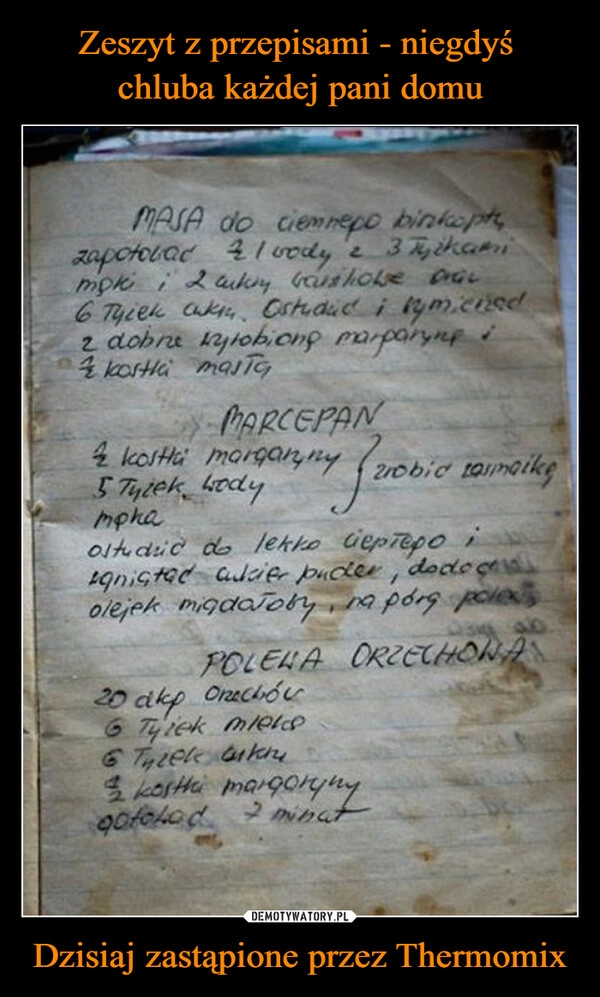 Zeszyt z przepisami - niegdyś
chluba każdej pani domu
MASA do ciemnego biszkoptu
zagotować ½ l wody z 3 łyżkami
mąki i 2 cukry waniliowe oraz
6 łyżek cukru. Ostudzić i
z dobrze wyrobioną margaryną i
½ kostki masła
MARCEPAN
½ kostki margaryny } zrobić zasmażkę
5 łyżek wody
mąka
ostudzić do lekko ciepłego i
zagniatać cukier puder, dodać
olejek migdałowy, na górę polewa
POLEWA ORZECHOWA
20 dkg orzechów
6 łyżek mleka
6 łyżek cukru
½ kostki margaryny
gotować 7 minut
DEMOTYWATORY.PL
Dzisiaj zastąpione przez Thermomix